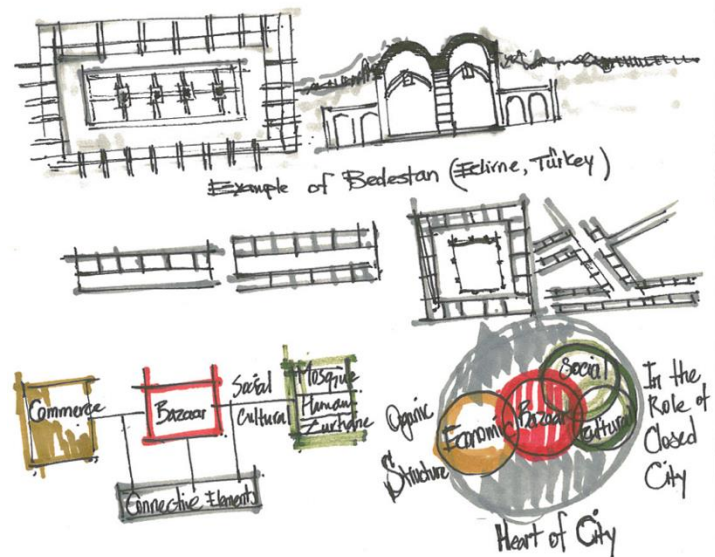 Example of Bedestan (Edirne, Turkey)
Commerce
Bazaar
Social
Cultural
Mosque
Connective Elements
Oganic
Structure
Economic
Bazaar
Social
Cultural
In the
Role of
Closed
City
Heart of City